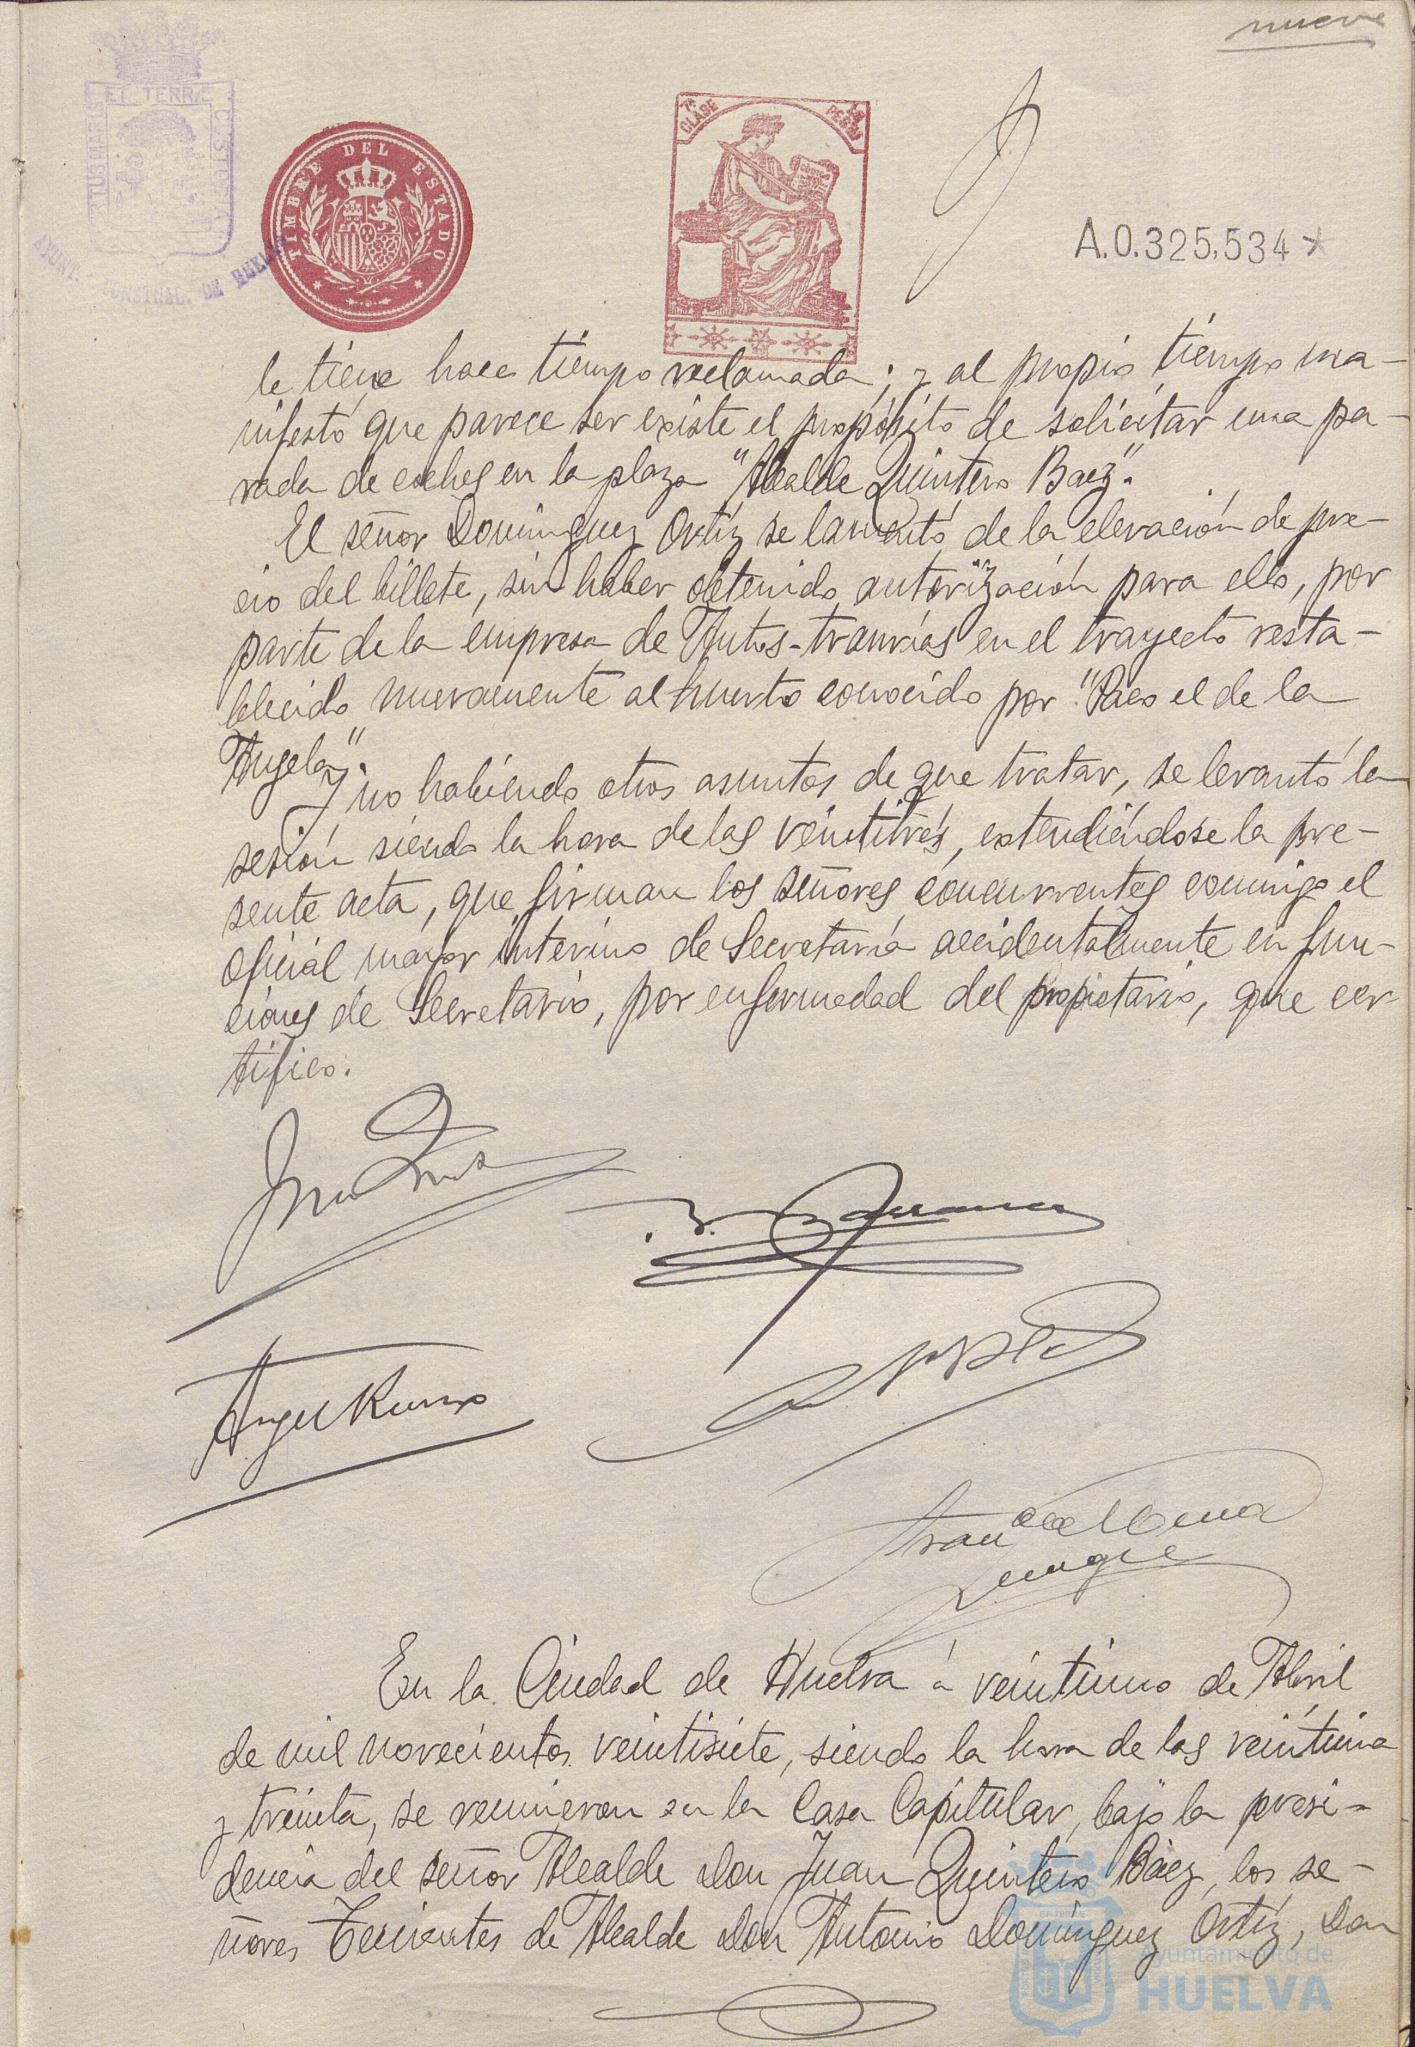 nueve
ET TERRÆ
CUSTODIA
AYUNT. CONSTNAL. DE HUELVA
TIMBRE DEL ESTADO
7ª CLASE
A.0.325,534*
le tiene hace tiempo reclamada; y al propio tiempo ma-
nifestó que parece ser existe el propósito de solicitar una pa-
rada de coches en la plaza "Alcalde Quintero Baez".
El señor Domínguez Ortíz se lamentó de la elevación de pre-
cio del billete, sin haber obtenido autorización para ello, por
parte de la empresa de Autos-tranvías en el trayecto resta-
blecido nuevamente al huerto conocido por "Paco el de la
Angela".
Y no habiendo otros asuntos de que tratar, se levantó la
sesión siendo la hora de las veintitrés, extendiéndose la pre-
sente acta, que firman los señores concurrentes conmigo el
oficial mayor interino de Secretaría accidentalmente en fun-
ciones de Secretario, por enfermedad del propietario, que cer-
tifico.
En la Ciudad de Huelva á veintiuno de Abril
de mil novecientos veintisiete, siendo la hora de las veintiuna
y treinta, se reunieron en la Casa Capitular, bajo la presi-
dencia del señor Alcalde Don Juan Quintero Báez, los se-
ñores Tenientes de Alcalde Don Antonio Domínguez Ortíz, Don
Ayuntamiento de
HUELVA